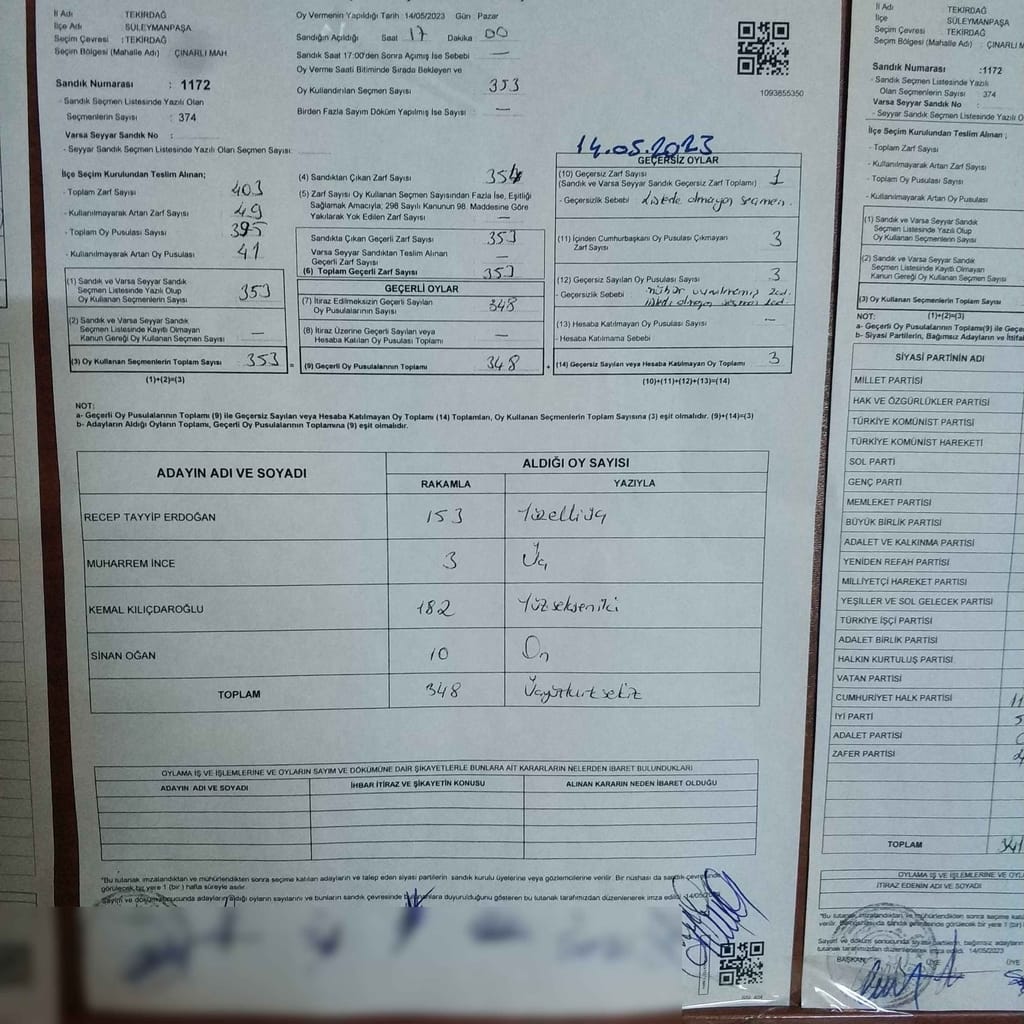 İl Adı : TEKİRDAĞ
İlçe Adı : SÜLEYMANPAŞA
Seçim Çevresi : TEKİRDAĞ
Seçim Bölgesi (Mahalle Adı) : ÇINARLI MAH
Sandık Numarası : 1172
- Sandık Seçmen Listesinde Yazılı Olan
Seçmenlerin Sayısı : 374
Varsa Seyyar Sandık No :
- Seyyar Sandık Seçmen Listesinde Yazılı Olan Seçmen Sayısı:
Oy Vermenin Yapıldığı Tarih : 14/05/2023 Gün : Pazar
Sandığın Açıldığı Saat 17 Dakika 00
Sandık Saat 17:00'den Sonra Açımış İse Sebebi —
Oy Verme Saati Bitiminde Sırada Bekleyen ve
Oy Kullandırılan Seçmen Sayısı 353
Birden Fazla Sayım Döküm Yapılmış İse Sayısı —
1093855350
14.05.2023
İlçe Seçim Kurulundan Teslim Alınan;
- Toplam Zarf Sayısı 403
- Kullanılmayarak Artan Zarf Sayısı 49
- Toplam Oy Pusulası Sayısı 395
- Kullanılmayarak Artan Oy Pusulası 41
(1) Sandık ve Varsa Seyyar Sandık
Seçmen Listesinde Yazılı Olup
Oy Kullanan Seçmenlerin Sayısı 353
(2) Sandık ve Varsa Seyyar Sandık
Seçmen Listesinde Kayıtlı Olmayan
Kanun Gereği Oy Kullanan Seçmen Sayısı —
(3) Oy Kullanan Seçmenlerin Toplam Sayısı 353
(1)+(2)=(3)
(4) Sandıktan Çıkan Zarf Sayısı 354
(5) Zarf Sayısı Oy Kullanan Seçmen Sayısından Fazla İse, Eşitliği
Sağlamak Amacıyla; 298 Sayılı Kanunun 98. Maddesine Göre
Yakılarak Yok Edilen Zarf Sayısı —
Sandıkta Çıkan Geçerli Zarf Sayısı 353
Varsa Seyyar Sandıktan Teslim Alınan
Geçerli Zarf Sayısı —
(6) Toplam Geçerli Zarf Sayısı 353
GEÇERLİ OYLAR
(7) İtiraz Edilmeksizin Geçerli Sayılan
Oy Pusulalarının Sayısı 348
(8) İtiraz Üzerine Geçerli Sayılan veya
Hesaba Katılan Oy Pusulası Toplamı —
(9) Geçerli Oy Pusulalarının Toplamı 348
GEÇERSİZ OYLAR
(10) Geçersiz Zarf Sayısı 1
(Sandık ve Varsa Seyyar Sandık Geçersiz Zarf Toplamı)
- Geçersizlik Sebebi Listede olmayan seçmen.
(11) İçinden Cumhurbaşkanı Oy Pusulası Çıkmayan
Zarf Sayısı 3
(12) Geçersiz Sayılan Oy Pusulası Sayısı 3
- Geçersizlik Sebebi
(13) Hesaba Katılmayan Oy Pusulası Sayısı —
- Hesaba Katılmama Sebebi
(14) Geçersiz Sayılan veya Hesaba Katılmayan Oy Toplamı 3
(10)+(11)+(12)+(13)=(14)
NOT:
a- Geçerli Oy Pusulalarının Toplamı (9) ile Geçersiz Sayılan veya Hesaba Katılmayan Oy Toplamı (14) Toplamları, Oy Kullanan Seçmenlerin Toplam Sayısına (3) eşit olmalıdır. (9)+(14)=(3)
b- Adayların Aldığı Oyların Toplamı, Geçerli Oy Pusulalarının Toplamına (9) eşit olmalıdır.
ADAYIN ADI VE SOYADI ALDIĞI OY SAYISI
RAKAMLA YAZIYLA
RECEP TAYYİP ERDOĞAN 153 Yüzelliüç
MUHARREM İNCE 3 Üç
KEMAL KILIÇDAROĞLU 182 Yüzsekseniki
SİNAN OĞAN 10 On
TOPLAM 348 Üçyüzkırksekiz
OYLAMA İŞ VE İŞLEMLERİNE VE OYLARIN SAYIM VE DÖKÜMÜNE DAİR ŞİKAYETLERLE BUNLARA AİT KARARLARIN NELERDEN İBARET BULUNDUKLARI
ADAYIN ADI VE SOYADI İHBAR İTİRAZ VE ŞİKAYETİN KONUSU ALINAN KARARIN NEDEN İBARET OLDUĞU
"Bu tutanak imzalandıktan ve mühürlendikten sonra seçime katılan adayların ve talep eden siyasi partilerin sandık kurulu üyelerine veya gözlemcilerine verilir. Bir nüshası da sandık çevresinde
görülecek bir yere 1 (bir) hafta süreyle asılır.
Sayım ve döküm sonucunda adayların aldığı oyların sayılarını ve bunların sandık çevresinde bulunanlara duyurulduğunu gösteren bu tutanak tarafımızdan düzenlenerek imza edildi. 14/05/2023
İl Adı TEKİRDAĞ
İlçe SÜLEYMANPAŞA
Seçim Çevresi : TEKİRDAĞ
Seçim Bölgesi (Mahalle Adı) : ÇINARLI M
Sandık Numarası :1172
- Sandık Seçmen Listesinde Yazılı
Olan Seçmenlerin Sayısı : 374
Varsa Seyyar Sandık No :
- Seyyar Sandık Seçmen Listesinde Yazılı O
İlçe Seçim Kurulundan Teslim Alınan ;
- Toplam Zarf Sayısı
- Kullanılmayarak Artan Zarf Sayısı
- Toplam Oy Pusulası Sayısı
- Kullanılmayarak Artan Oy Pusulası
(1) Sandık ve Varsa Seyyar Sandık
Seçmen Listesinde Yazılı Olup
Oy Kullanan Seçmenlerin Sayısı
(2) Sandık ve Varsa Seyyar Sandık
Seçmen Listesinde Kayıtlı Olmayan
Kanun Gereği Oy Kullanan Seçmen Sayısı
(3) Oy Kullanan Seçmenlerin Toplam Sayısı
(1)+(2)=(3)
NOT:
a- Geçerli Oy Pusulalarının Toplamı (9) ile Geçe
b- Siyasi Partilerin, Bağımsız Adayların ve İttifa
SİYASİ PARTİNİN ADI
MİLLET PARTİSİ
HAK VE ÖZGÜRLÜKLER PARTİSİ
TÜRKİYE KOMÜNİST PARTİSİ
TÜRKİYE KOMÜNİST HAREKETİ
SOL PARTİ
GENÇ PARTİ
MEMLEKET PARTİSİ
BÜYÜK BİRLİK PARTİSİ
ADALET VE KALKINMA PARTİSİ
YENİDEN REFAH PARTİSİ
MİLLİYETÇİ HAREKET PARTİSİ
YEŞİLLER VE SOL GELECEK PARTİSİ
TÜRKİYE İŞÇİ PARTİSİ
ADALET BİRLİK PARTİSİ
HALKIN KURTULUŞ PARTİSİ
VATAN PARTİSİ
CUMHURİYET HALK PARTİSİ
İYİ PARTİ
ADALET PARTİSİ
ZAFER PARTİSİ
TOPLAM 341
OYLAMA İŞ VE İŞLEMLERİNE VE OYL
İTİRAZ EDENİN ADI VE SOYADI
"Bu tutanak imzalandıktan ve mühürlendikten sonra seçime kat
Sayım ve döküm sonucunda siyasi partilerin, bağımsız adayların
14/05/2023
BAŞKAN ÜYE ÜYE